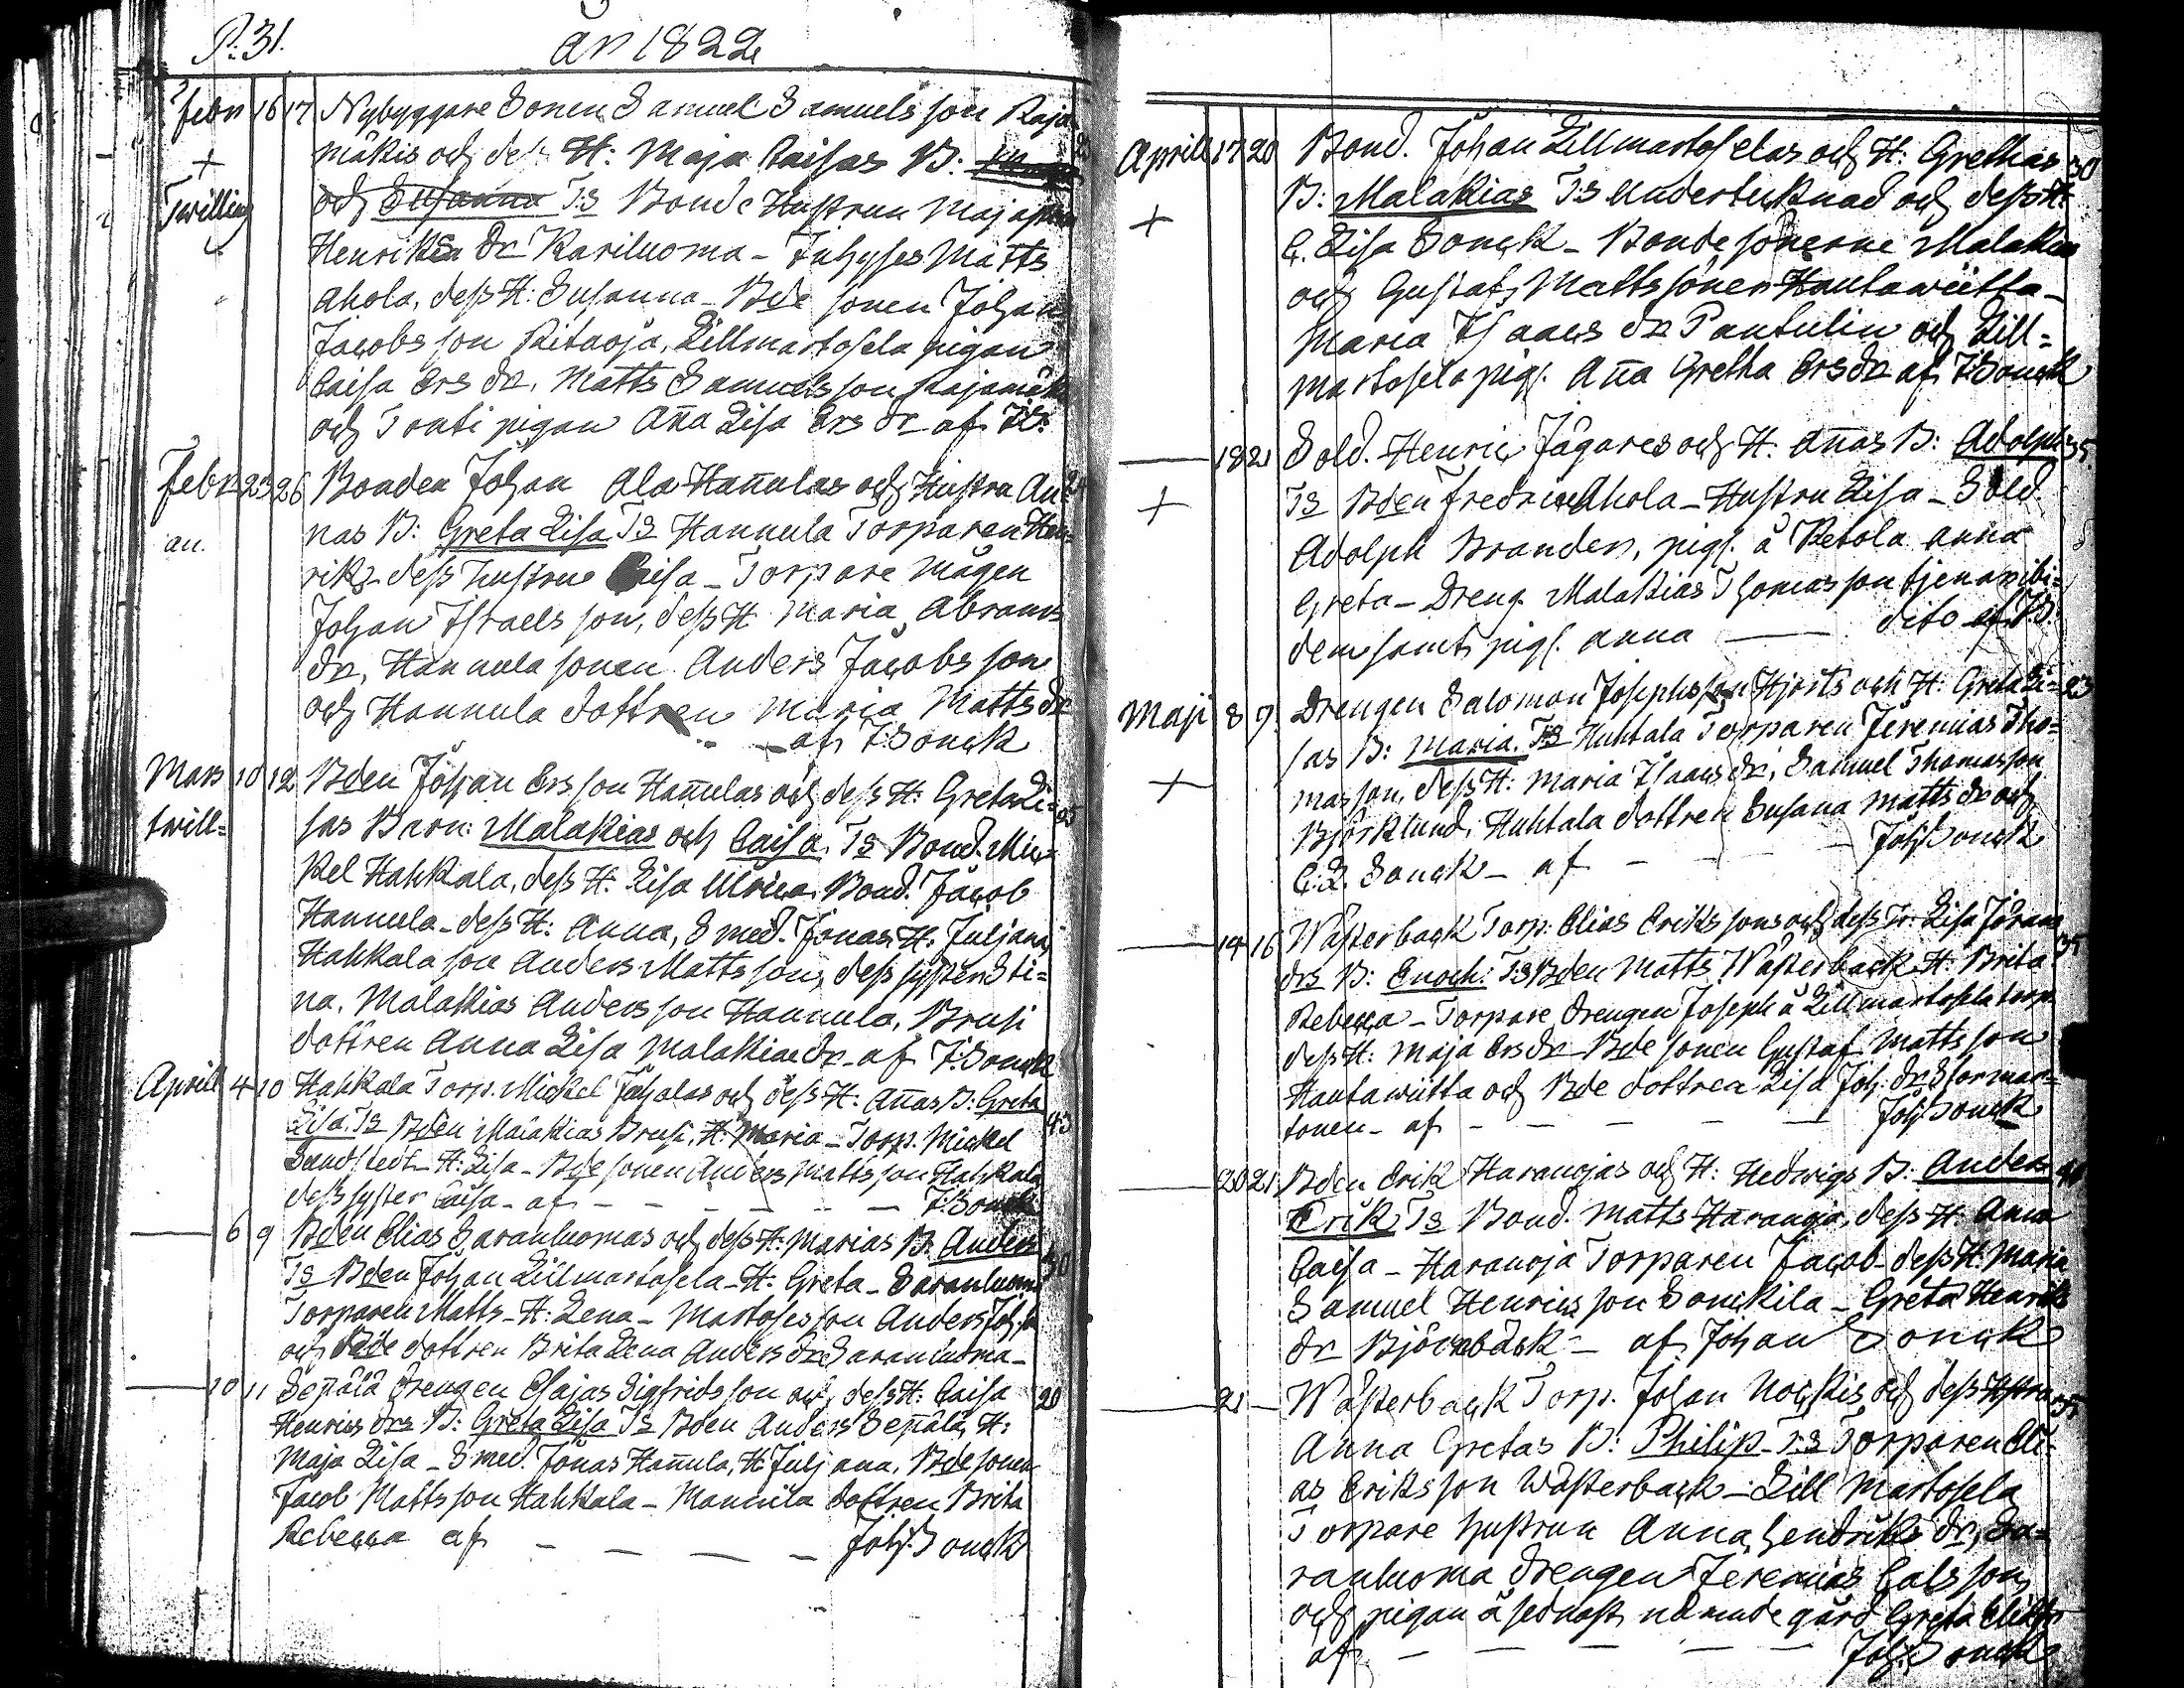 P. 31. år 1822
Febr 16 17 Nybyggare Sonen Samuel Samuelsson Raja
mäkis och dess H: Maja Caisas B:
Twilling och Susanna Ts Bonde Hustrun Maja
Henriks Dr Kariluoma - Inhyses Matts
Ahola, dess H: Susanna - Bde sonen Johan
Jacobsson Ritaoja, Lillmartosela pigan
Caisa Ers dr, Matts Samuelsson Rajamäki
och Tonti pigan Aña Lisa Ers dr af J:S:
Febr 23 26 Bonden Johan Ala Hañulas och Hustru An 24
an. nas B: Greta Lisa Ts Hannula Torparen Hen
rik, dess hustru Caisa - Torpare mågen
Johan Israelsson, dess H Maria Abrams
dr, Hannula sonen Anders Jacobsson
och Hannula dottren Maria Matts dr
af J:Sonck
Mars 10 12 Bden Johan Ersson Hañulas och dess H: Greta Li= 25
twill= sas Barn: Malakias och Caisa. Ts Bond. Mic=
kel Hahkala, dess H: Lisa Ulrica. Bond. Jacob
Hannula - dess H: Anna, Smed. Jonas H: Juljana
Hahkala son Anders Mattsson, dess syster Sti=
na. Malakias Andersson Hannula, Brusi
dottren Anna Lisa Malakiae dr - af J:Sonck
Aprill 4 10 Hahkala Torp. Mickel Juholas och dess H: Añas B: Greta
Lisa. Ts Bden Malakias Brusi, H: Maria - Torp. Mickel 43
Sandstedt - H: Lisa - Bde sonen Anders Mattsson Hahkala
dess syster Caisa - af - - - - - J:Sonck
6 9 Bden Elias Saranluomas och dess H: Marias B: Anders
Ts Bden Johan Lillmartosela - H: Greta - Saranluoma 30
Torparen Matts - H: Lena - Martoses son Anders Joh.
och Bde dottren Brita Lena Anders dr Saranluoma -
10 11 Sepälä Drengen Esajas Sigfridsson och dess H: Caisa 20
Henrics drs B: Greta Lisa Ts Bden Anders Sepälä, H:
Maja Lisa - Smed. Jonas Hañula, H: Juljana, Bde sonen
Jacob Mattsson Hahkala - Mannila dottren Brita
Rebecca af - - - - Joh: Sonck
Aprill 17 20 Bond. Johan Lillmartoselas och H: Grethas 30
B: Malakias Ts Undertecknad och dess H:
C. Lisa Sonck - Bonde sönerne Malakias
och Gustaf Matts söner Hautawiitta -
Maria Isaacs dr Pantulin och Lill=
martosela pig. Aña Gretha Ers dr af J:Sonck
18 21 Sold. Henric Jägares och H. Añas B: Adolph 35
Ts Bden Fredric Ahola - Hustru Lisa - Sold.
Adolph Brander, pig. å Retola Anna
Greta - Dreng Malakias Thomasson tjenar ibi=
dem samt pig. Anna - dito af J:S:
Maji 8 9 Drengen Salomon Josephsson Hjorts och H: Greta Li= 23
sas B: Maria. Ts Huhtala Torparen Jeremias Tho=
masson, dess H: Maria Isaacs dr, Samuel Thomasson
Björklund, Huhtala dottren Susana Matts dr och
C: L: Sonck - af - - - - Joh: Sonck
14 16 Wästerback Torp. Elias Erikssons och dess H: Lisa Jörans 35
drs B: Enoch: Ts Bden Matts Wästerback H: Brita
Rebecca - Torpare drengen Joseph å Lillmartosela torp.
dess H: Maja Ers dr - Bde sonen Gustaf Mattsson
Hautawiitta och Bde dottren Lisa Joh: dr Stormar=
tonen - af - - - - - Joh: Sonck
20 21 Bden Erik Haranojas och H: Hedwigs B: Anders 41
Erik Ts Bond. Matts Haranoja, dess H: Anna
Caisa - Haranoja Torparen Jacob - dess H: Maria
Samuel Henricsson Sonckila - Greta Henriks
dr Björnbäck - af Johan Sonck
21 - Wästerback Torp. Johan Nockis och dess Hustru 35
Anna Gretas B: Philip - Ts Torparen Eli=
as Eriksson Wästerback - Lill Martosela
Torpare hustrun Anna Hendriks dr, Sa=
ranluoma drengen Jeremias Calsson
och pigan å sednast nämnde gård Greta
af - - - - - Joh: Sonck